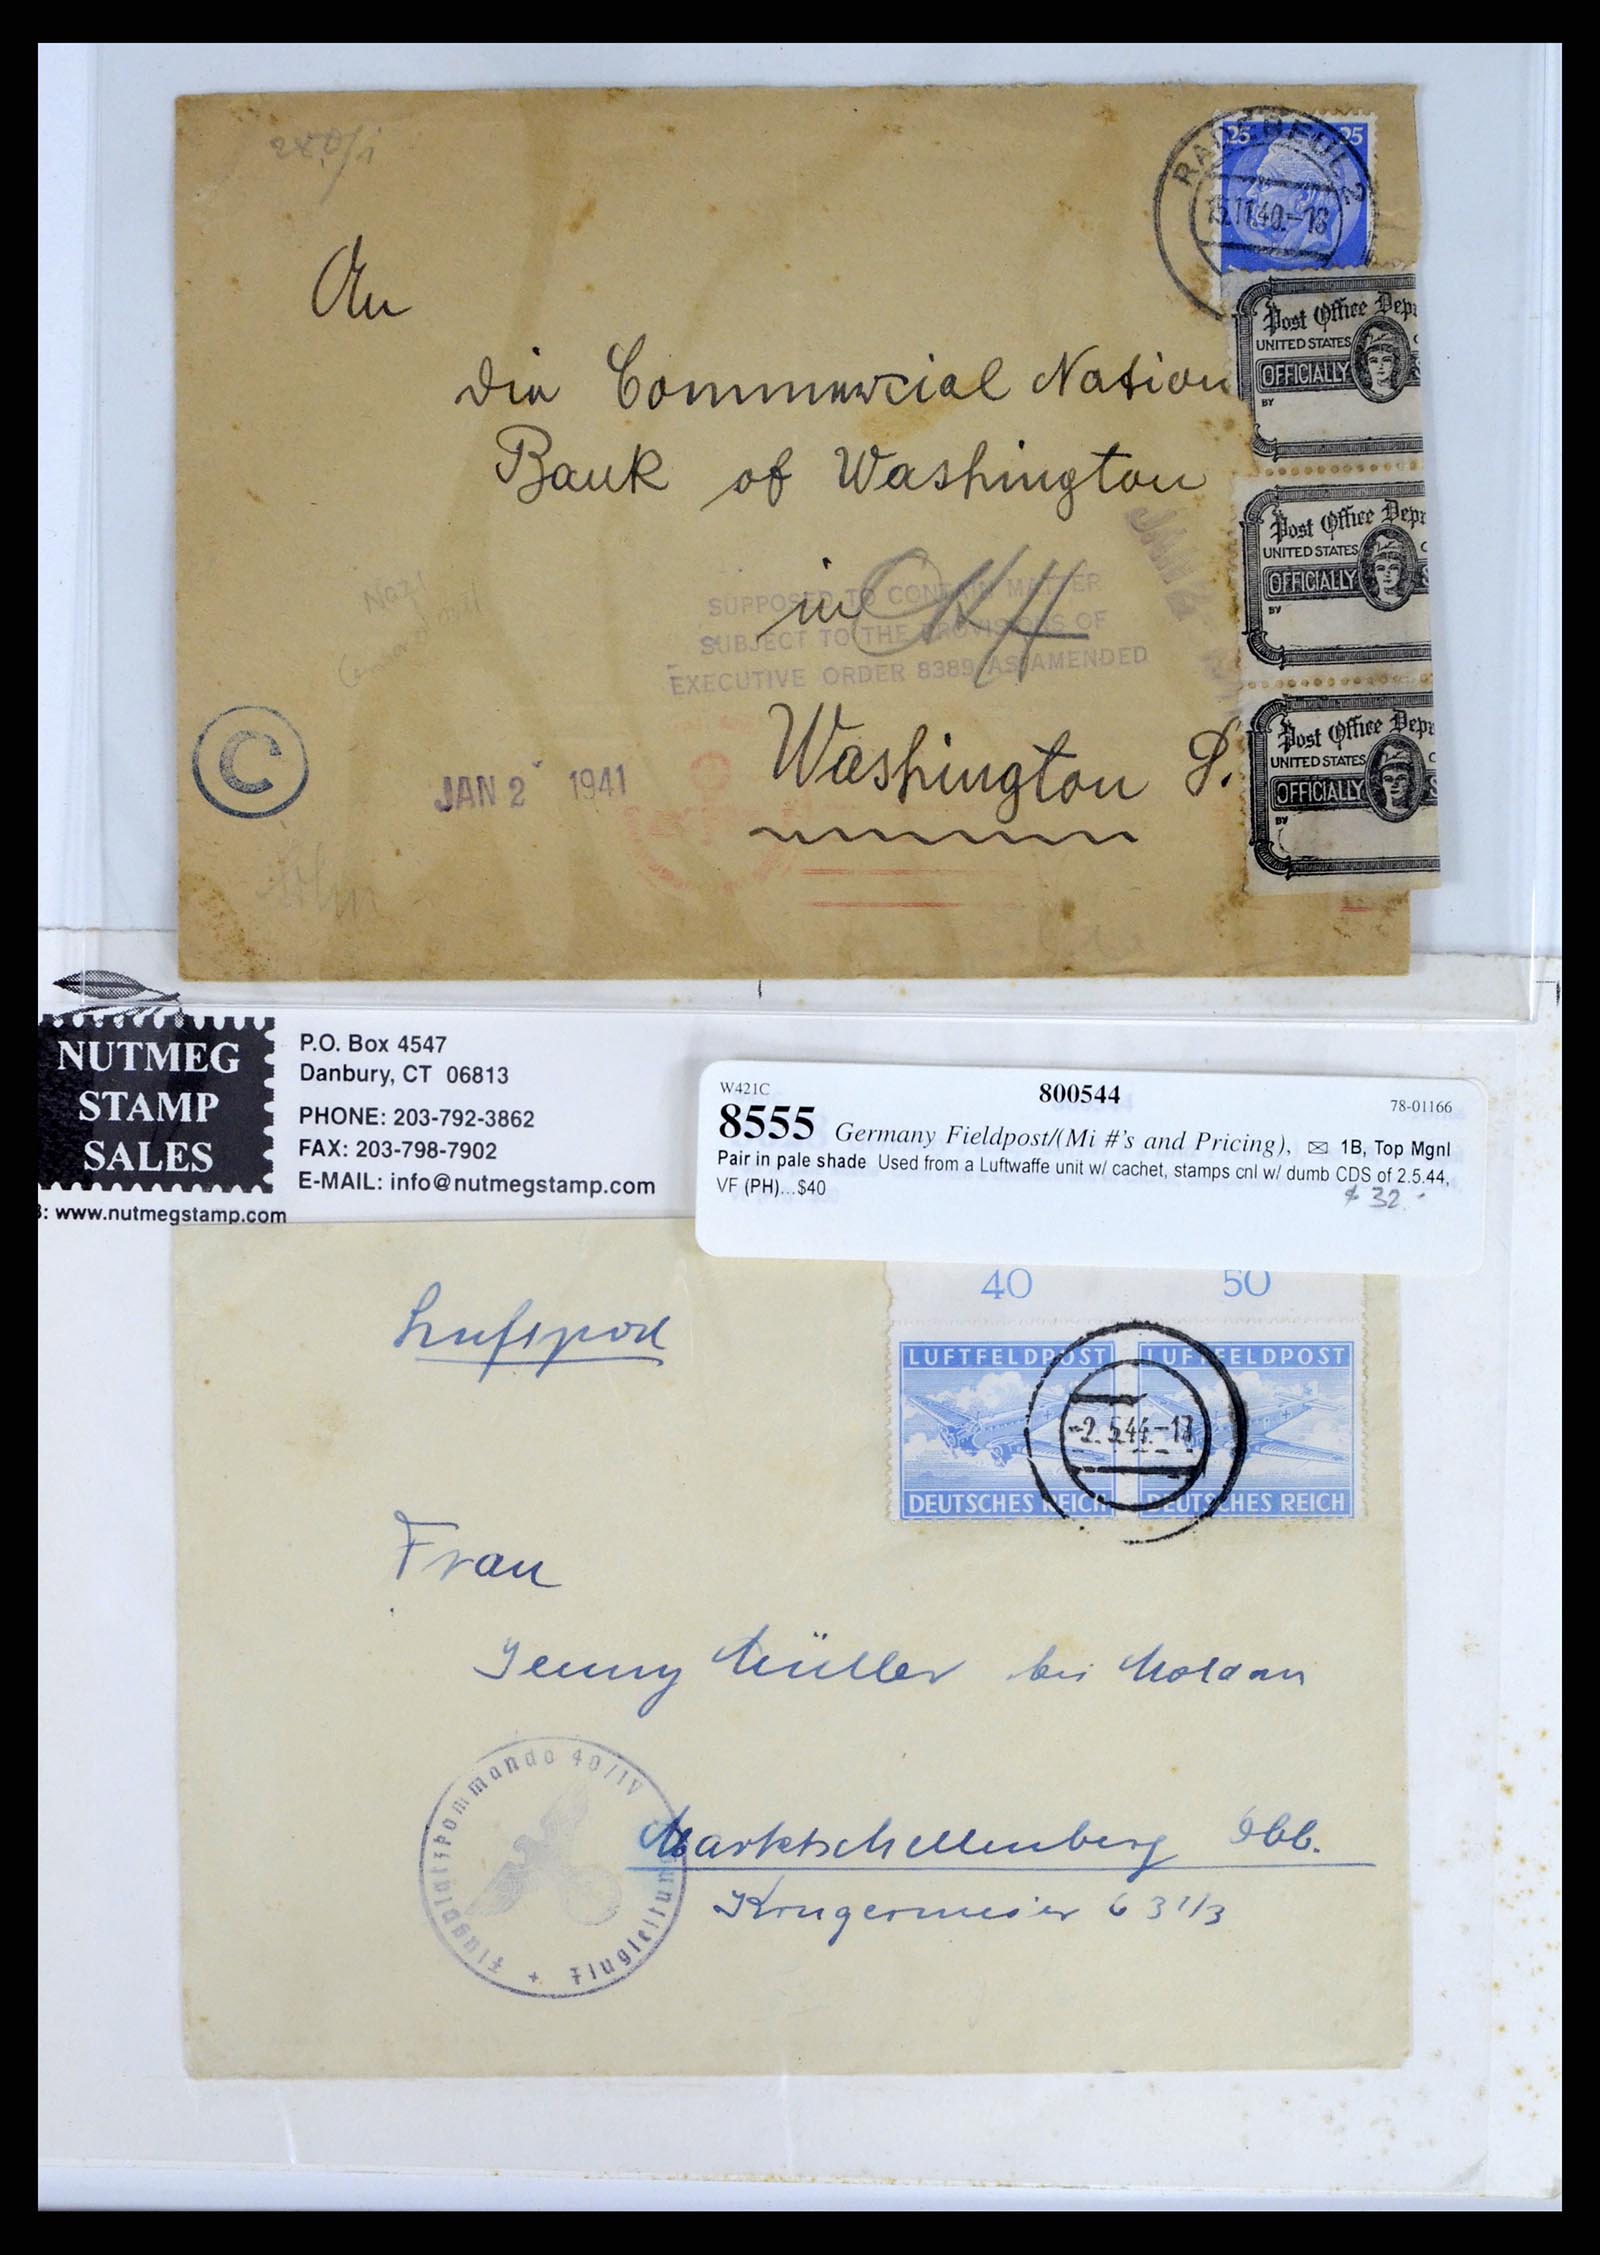 25 25
RADEBEUL 2
15.11.40.-18
An
die Commercial Nation
Bank of Washington
in
Washington D.
Post Office Dep
UNITED STATES
OFFICIALLY
BY
Post Office Depr
UNITED STATES
OFFICIALLY
BY
Post Office Depr
UNITED STATES
OFFICIALLY
BY
SUPPOSED TO CONTAIN MATTER
SUBJECT TO THE PROVISIONS OF
EXECUTIVE ORDER 8389 AS AMENDED
Nazi
Censored mail
C
JAN 2 1941
NUTMEG
STAMP
SALES
P.O. Box 4547
Danbury, CT 06813
PHONE: 203-792-3862
FAX: 203-798-7902
E-MAIL: info@nutmegstamp.com
: www.nutmegstamp.com
W421C 800544 78-01166
8555 Germany Fieldpost/(Mi #'s and Pricing), ✉ 1B, Top Mgnl
Pair in pale shade Used from a Luftwaffe unit w/ cachet, stamps cnl w/ dumb CDS of 2.5.44,
VF (PH)...$40
$ 32.-
40 50
LUFTFELDPOST LUFTFELDPOST
-2.5.44.-18
DEUTSCHES REICH DEUTSCHES REICH
Luftpost
Frau
Jenny Müller bei Moldan
Marktschellenberg Obb.
Flugplatzkommando 40/IV
Flugleitung